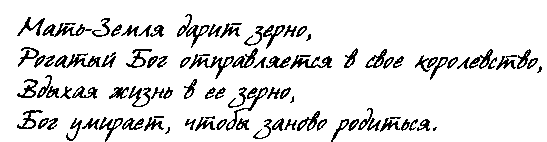 Мать-Земля дарит зерно,
Рогатый Бог отправляется в свое королевство,
Вдыхая жизнь в ее зерно,
Бог умирает, чтобы заново родиться.